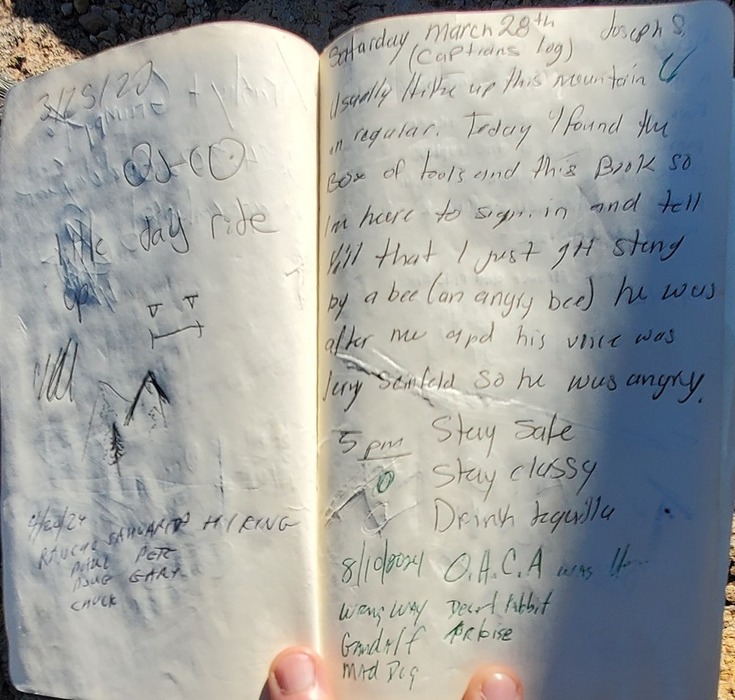 3/25/20
+ Tylan
little day ride
up
4/20/24
RANCHO SAHUARITA HIKING
PETE
DOUG GARY
CHUCK
Saturday March 28th Joseph S.
(Captians log)
Usually Hike up this mountain
on regular. Today I found the
Box of tools and this Book so
Im here to sign in and tell
Y'all that I just gtt stung
by a bee (an angry bee) he was
after me and his voice was
Jerry Seinfeld so he was angry.
5 pm Stay safe
Stay classy
Drink tequilla
8/10/2024 O.H.C.A was
Wrong Way Desert Rabbit
Gandalf Tortoise
Mad Dog